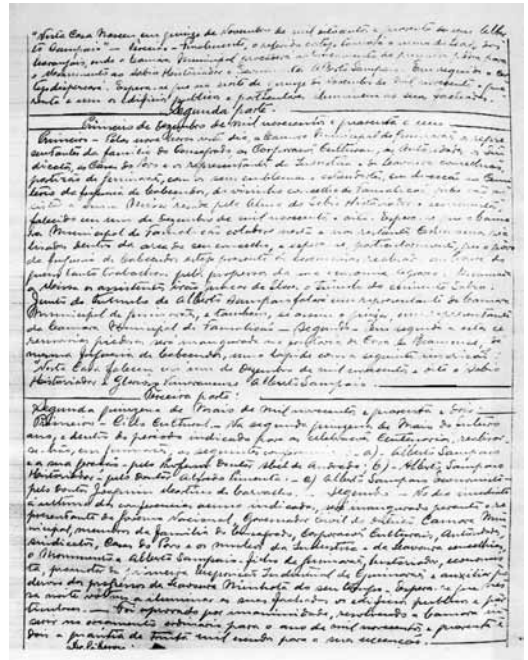 "Nesta Casa Nasceu, em quinze de Novembro de mil oitocentos e quarenta e um Alber-
to Sampaio" — Terceiro — Finalmente, o referido cortejo tomará o rumo do Largo dos
Laranjais, onde a Camara Municipal procederá ao lançamento da primeira pedra para
o Monumento ao Sabio Historiador e Economista Alberto Sampaio. Em seguida o cor-
tejo dispersará. Espera-se que na noite de quinze de Novembro de mil novecentos e qua-
renta e um os edificios publicos e particulares iluminem as suas fachadas.
Segunda parte:
Primeiro de Dezembro de mil novecentos e quarenta e um —
Primeiro — Pelas nove horas sairá da Camara Municipal de Guimarães a repre
sentantes da familia do Consagrado as Corporações Culturais, as Autoridades, os Sin-
dicatos, as Casas do Povo e os representantes da Industria e da Lavoura concelhia,
portadoras de com os seus emblemas e estandartes, em direcção ao Cemi
terio da freguesia de Cabeçudos, do vizinho concelho de Famalicão,
uma Missa rezada pela alma do Sabio Historiador e economista,
falecido em um de Dezembro de mil novecentos e oito. Espera-se que a Cama
ra Municipal de Famalicão colabore nesta e nas restantes
dentro da area do seu concelho, e espera-se, particularmente, que o povo
da freguesia de Cabeçudos esteja presente ás cerimonias realizadas em honra de
quem tanto trabalhou pelo progresso da sua economia agraria. Terminada
a Missa os assistentes irão juncar de flores o tumulo do eminente Sabio.
Junto do Tumulo de Alberto Sampaio falará um representante da Camara
Municipal de Guimarães, e tambem, se assim o quizer, um representante
da Camara Municipal de Famalicão — Segundo — Em seguida a esta ce
rimonia piedosa será inaugurada na frontaria da Casa de Boamense, da
mesma freguesia de Cabeçudos, uma lapide com a seguinte inscrição:
"Nesta Casa faleceu em um de Dezembro de mil novecentos e oito o Sabio
Historiador e Glorioso Vimaranense Alberto Sampaio —
Terceira parte:
Segunda quinzena de Maio de mil novecentos e quarenta e dois —
Primeiro — Ciclo Cultural — Na segunda quinzena de Maio do referido
ano, e dentro do periodo indicado para as celebrações Centenarias, realizar-
se-hão, em Guimarães, as seguintes conferencias: — a) — Alberto Sampaio
e a sua geração — pelo Professor Doutor Abel de Andrade; b) — Alberto Sampaio
Historiador — pelo Doutor Alfredo Pimenta — c) Alberto Sampaio economista —
pelo Doutor Joaquim de Carvalho. — Segundo — No dia imediato
á ultima das conferencias acima indicadas, será inaugurado perante o re
presentante do Governo Nacional, Governador Civil do Distrito Camara Mu
nicipal, membros da familia do Consagrado, Corporações Culturais, Autoridades,
sindicatos, Casas do Povo e os nucleos da Industria e da Lavoura concelhia,
o Monumento a Alberto Sampaio — filho de Guimarães, historiador, economis
ta, promotor da primeira Exposição Industrial de Guimarães, e auxiliar po
deroso dos progressos da Lavoura Minhota do seu tempo. Espera-se que nes
sa noite voltem a iluminar as suas fachadas os edificios publicos e par
ticulares. — Foi aprovado por unanimidade, resolvendo a Camara in
serir no orçamento ordinario para o ano de mil novecentos e quarenta e
dois a quantia de trinta mil escudos para a sua execução.